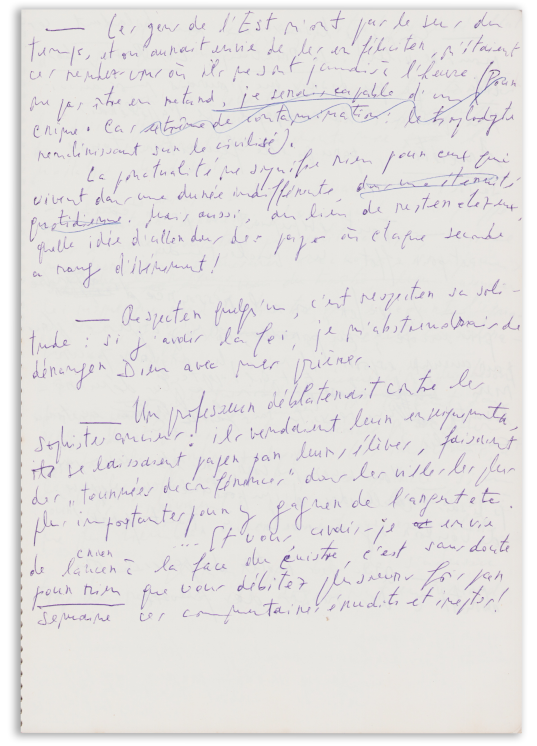 — Les gens de l'Est n'ont pas le sens du
temps, et on aurait envie de les en féliciter, n'étaient
ces rendez-vous où ils ne sont jamais à l'heure (Pour
ne pas être en retard, je serais capable d'un
crime. Cas extrême de contamination: le troglodyte
renchérissant sur le civilisé).
La ponctualité ne signifie rien pour ceux qui
vivent dans une durée indifférente, dans une éternité
quotidienne. Mais aussi, au lieu de rester chez eux,
quelle idée d'aller dans des pays où chaque seconde
a rang d'événement!
— Respecter quelqu'un, c'est respecter sa soli-
tude: si j'avais la foi, je m'abstiendrais de
déranger Dieu avec mes prières.
— Un professeur déblatérait contre les
sophistes anciens: ils vendaient leur enseignement,
ils se laissaient payer par leurs élèves, faisaient
des "tournées de conférences" dans les villes les plus
plus importantes pour y gagner de l'argent etc.
... Et vous, avais-je envie
de lancer à la face du cuistre c'est sans doute
crier
pour rien que vous débitez plusieurs fois par
semaine ces commentaires érudits et ineptes!